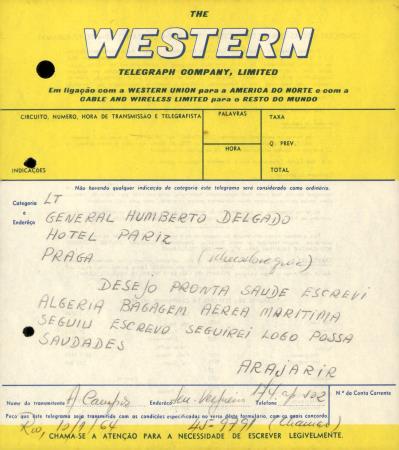 THE
WESTERN
TELEGRAPH COMPANY, LIMITED
Em ligação com a WESTERN UNION para a AMERICA DO NORTE e com a
CABLE AND WIRELESS LIMITED para o RESTO DO MUNDO
CIRCUITO, NUMERO, HORA DE TRANSMISSÃO E TELEGRAFISTA
PALAVRAS
TAXA
HORA
Q. PREV.
INDICAÇÕES
TOTAL
Não havendo qualquer indicação de categoria este telegrama será considerado como ordinário.
Categoria LT
e
Endereço
GENERAL HUMBERTO DELGADO
HOTEL PARIZ
PRAGA (Tchecoslovaquia)
DESEJO PRONTA SAUDE ESCREVI
ALGERIA BAGAGEM AEREA MARITIMA
SEGUIU ESCREVO SEGUIREI LOGO POSSA
SAUDADES
ARAJARIR
Nome do transmitente A Campos Endereço 174 ap 102 N.º da Conta Corrente
Peço que este telegrama seja transmitido com as condições especificadas no verso deste formulário, com as quais concordo.
Rio, 10/1/64 45-9791
CHAMA-SE A ATENÇÃO PARA A NECESSIDADE DE ESCREVER LEGIVELMENTE.